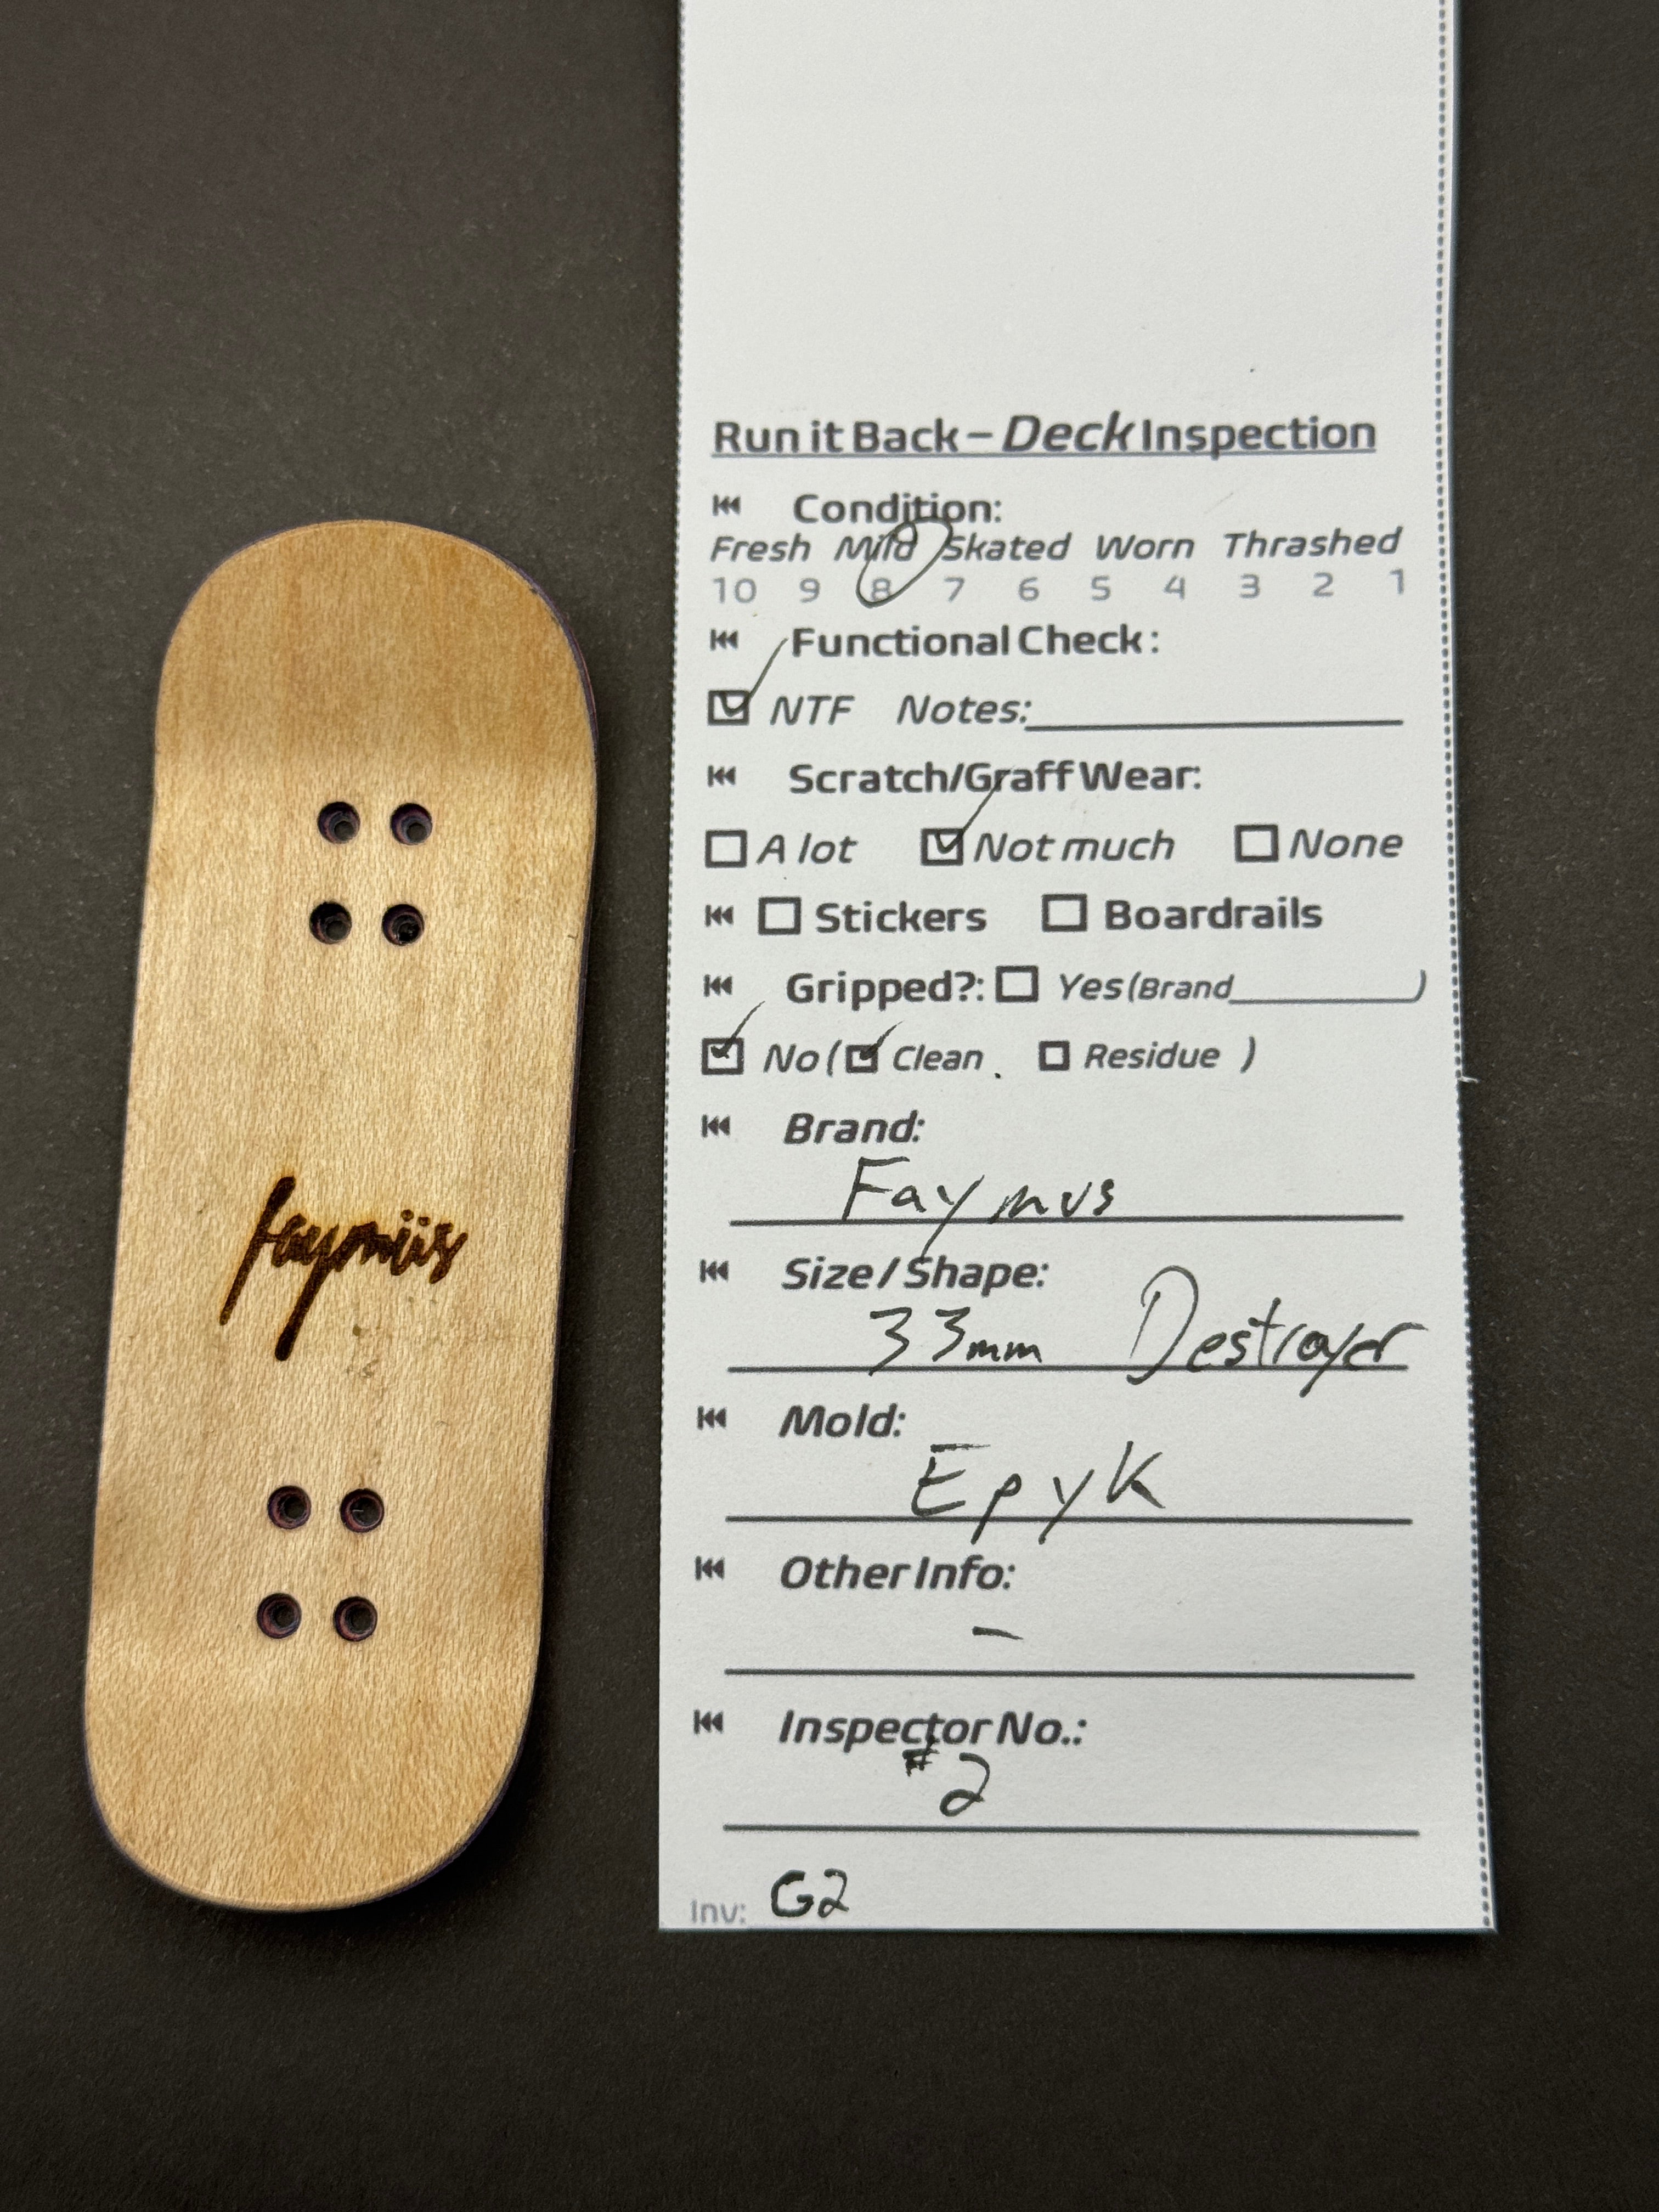 Run it Back – Deck Inspection
Condition:
Fresh Mild Skated Worn Thrashed
10 9 8 7 6 5 4 3 2 1
Functional Check:
NTF Notes:
Scratch/Graff Wear:
A lot Not much None
Stickers Boardrails
Gripped?: Yes (Brand )
No ( Clean . Residue )
Brand:
Faymus
faymüs
Size / Shape:
33mm Destroyer
Mold:
Epyk
Other Info:
–
Inspector No.:
#2
Inv: G2